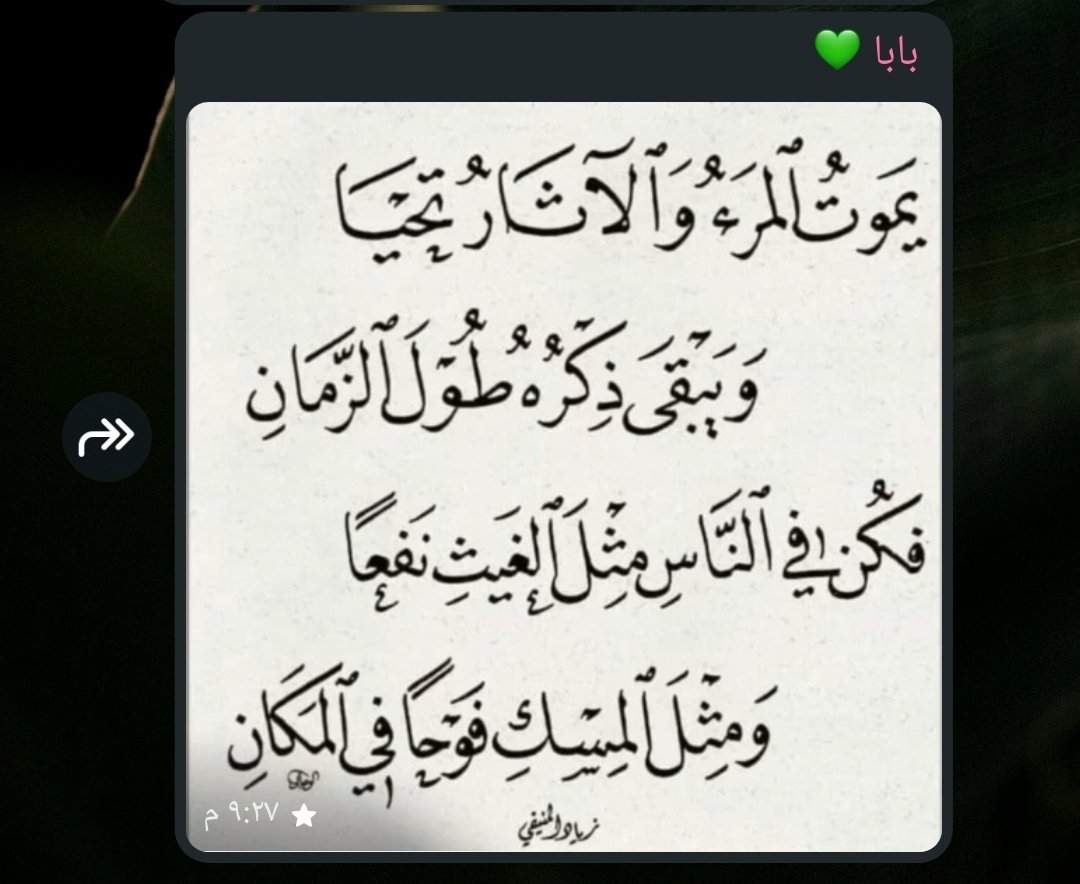 بابا 💚
يَموتُ ٱلمَرءُ وَٱلآثَارُ تَحْيَا
وَيَبْقَى ذِكْرُهُ طُوْلَ ٱلزَّمَانِ
فَكُن في ٱلنَّاسِ مِثْلَ ٱلغَيثِ نَفعًا
وَمِثْلَ ٱلمِسْكِ فَوْحًا في ٱلمَكَانِ
زياد المنيفي
٩:٢٧ م